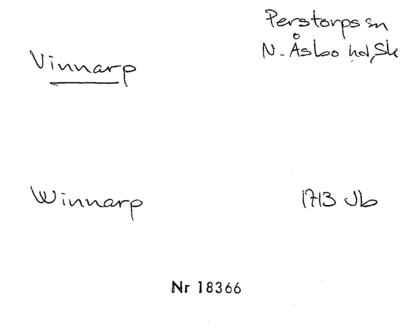 Perstorps sn
Vinnarp N. Åsbo hd, Sk
Winnarp 1713 Jb
Nr 18366